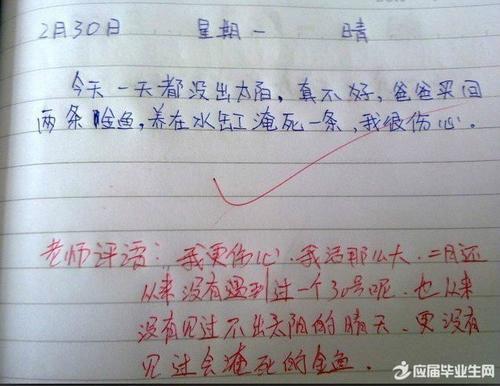 2月30日 星期一 晴
今天一天都没出太阳，真不好，爸爸买回
两条金鱼，养在水缸淹死一条，我很伤心。
老师评语：我更伤心.我活那么大.二月还
从来没有碰到过一个30号呢.也从来
没有见过不出太阳的晴天.更没有
见过会淹死的金鱼.
应届毕业生网